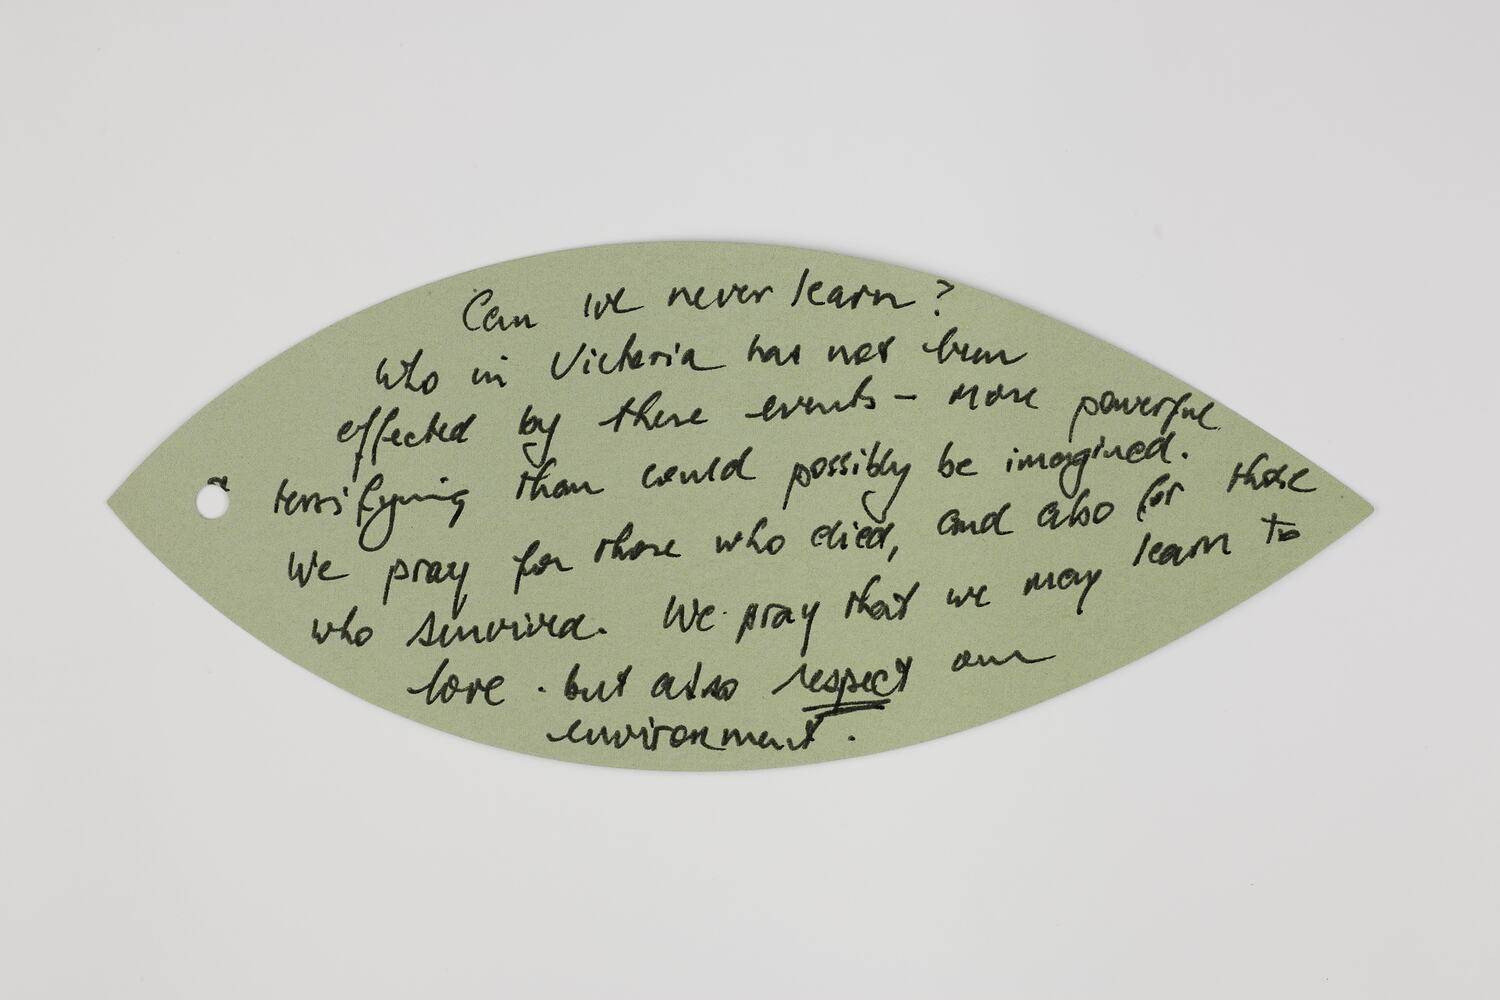 Can we never learn?
Who in Victoria has not been
effected by these events - more powerful
& terrifying than could possibly be imagined.
We pray for those who died, and also for those
who survived. We pray that we may learn to
love . but also respect our
environment .